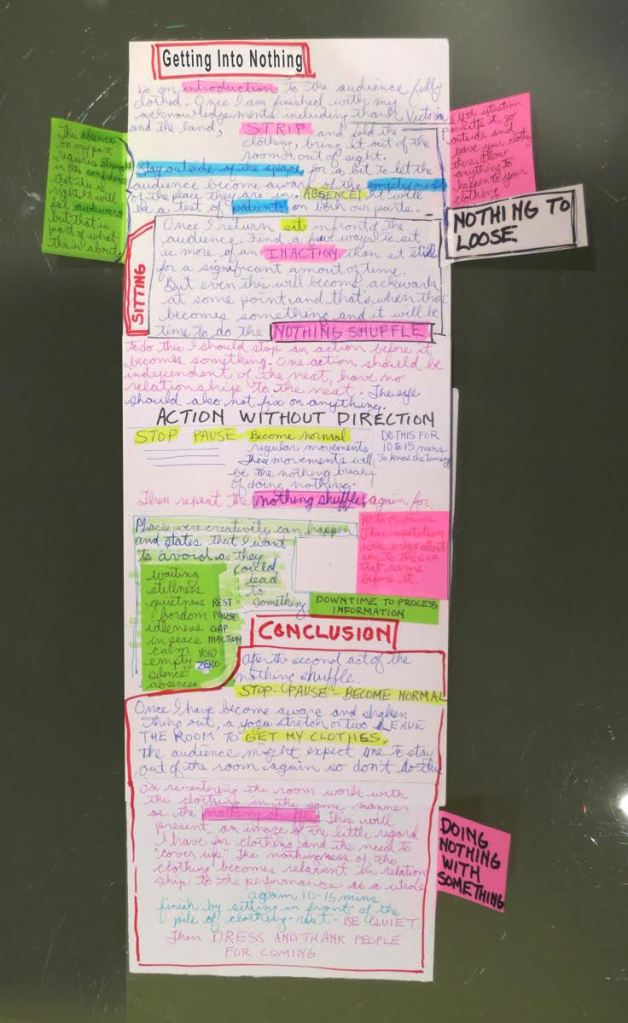 Getting Into Nothing
Do an introduction to the audience fully
clothed. Once I am finished with my
acknowledgements including thank Victoria
and the land, STRIP and fold the
clothing, bring it out of the
room or out of sight.
Stay outside of the space for a bit to let the
audience become aware of the emptyness
of the place they are in. ABSENCE! It will
be a test of on both our parts.
This absence
on my part
requires strength
in the confidence
that this is
right. It will
feel awkward
but that is
part of what
this is about.
If the situation
permits it, go
outside and
leave your clothes
there. Allow
anything to
happen to your
clothing
NOTHING TO
LOOSE
SITTING
Once I return, sit in front of the
audience. Find a few ways to sit
is more of an INACTION than sit still
for a significant amount of time.
But even this will become ackwark
at some point and that's when that
becomes something and it will be
time to do the NOTHING SHUFFLE
to do this I should stop an action before it
becomes something. One action should be
independent of the next, have no
relationship to the next. The eye
should also not fix on anything.
ACTION WITHOUT DIRECTION
STOP PAUSE Become normal
regular movements
These movements will
be the nothing breaks
of doing nothing.
DO THIS FOR
10 to 15 mins
to know the timing
Then repeat the nothing shuffle again for
10 to 15 mins.
This repetition
came before it.
Places were creativity can happen
and states that I want
to avoid as they
could
lead
to
something
waiting
stillness
quietness REST
bordom PAUSE
idleness GAP
in peace INACTION
calm VOID
empty ZERO
silence
absence
DOWNTIME TO PROCESS
INFORMATION
CONCLUSION
after the second act of the
nothing shuffle.
STOP - PAUSE - BECOME NORMAL
Once I have become aware and shaken
thing out, a yoga stretch or two LEAVE
THE ROOM TO GET MY CLOTHES.
the audience might expect me to stay
out of the room again so don't do this
On re-entering the room work with
the clothing in the same manner
as the nothing shuffle. This will
present an image of the little regard
I have for clothing and the need to
"cover up". The nothingness of the
clothing becomes relevant in relation
ship to the performance as a whole
again 10-15 mins
finish by sitting in front of the
pile of clothing - rest - BE QUIET.
Then DRESS AND THANK PEOPLE
FOR COMING
DOING
NOTHING
WITH
SOMETHING